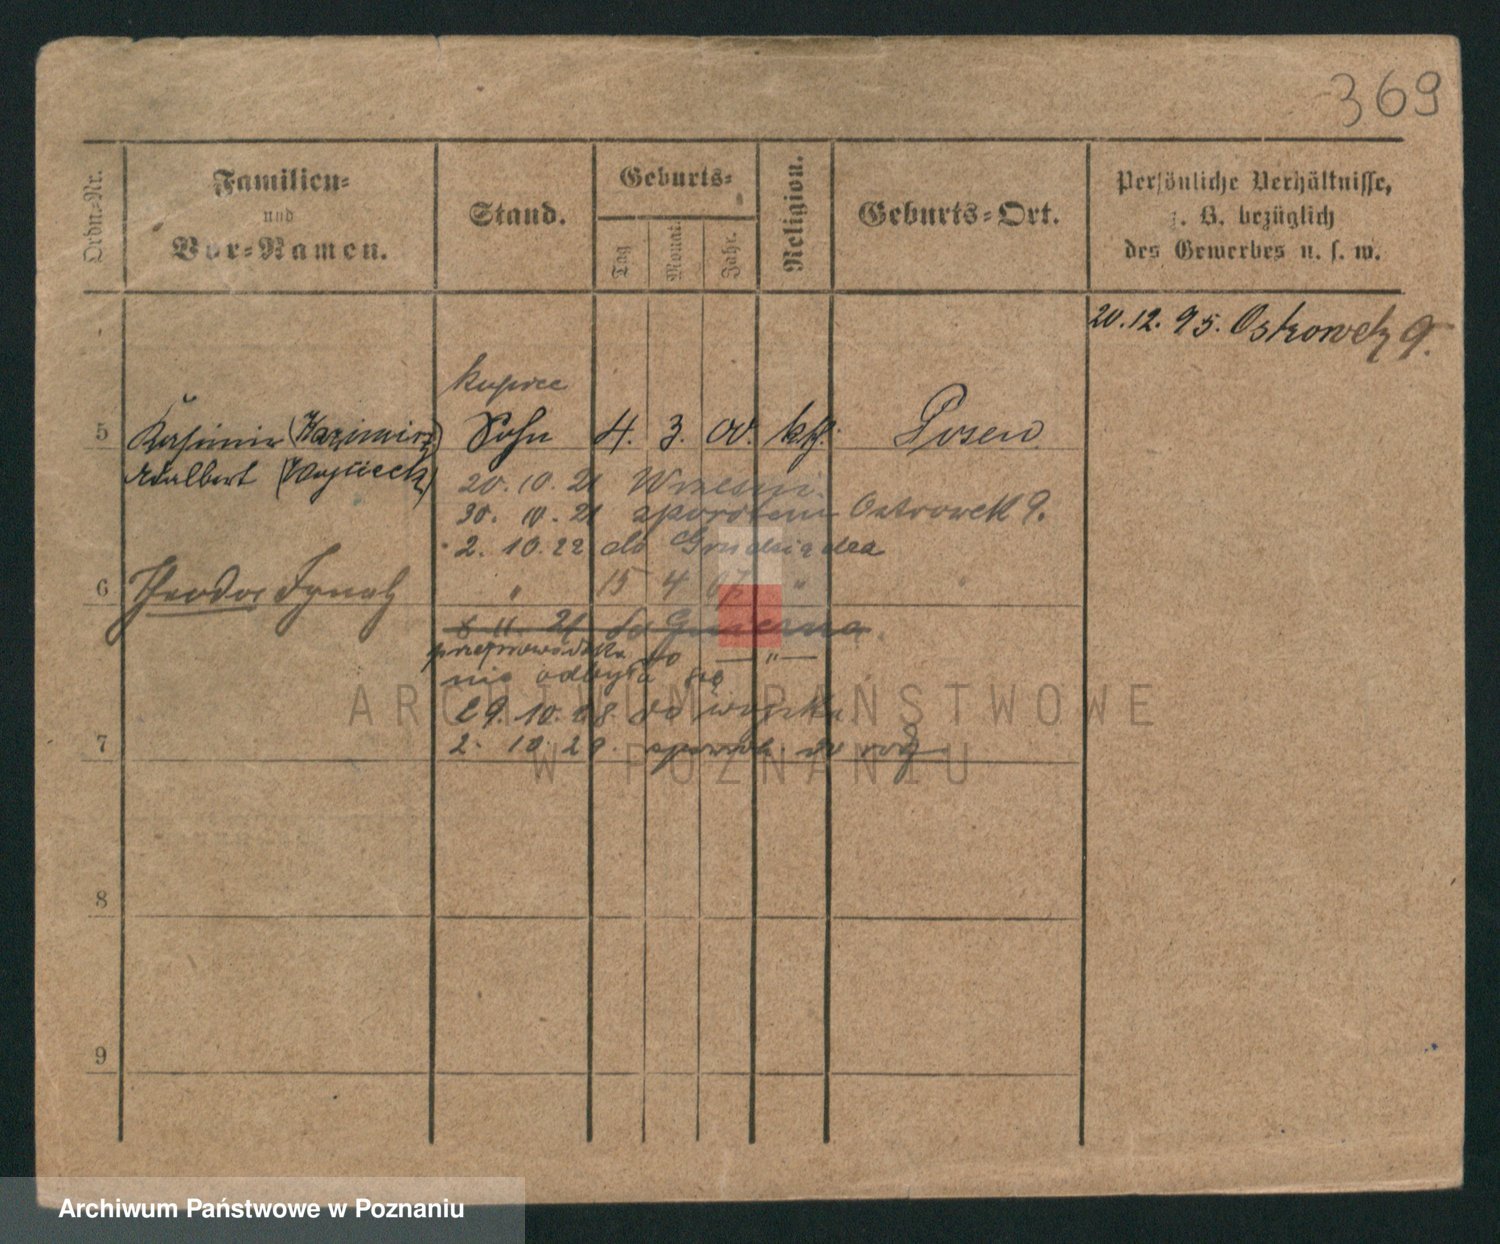 369
Ordn.-Nr.
Familien-
und
Vor-Namen.
Stand.
Geburts-
Tag
Monat.
Jahr.
Religion.
Geburts-Ort.
Persönliche Verhältnisse,
z. B. bezüglich
des Gewerbes u. s. w.
20.12.95. Ostrowek 9.
kupiec
5 Kasimir (Kazimierz) Sohn 4. 3. 00. kth. Posen
Adalbert (Wojciech)
20.10.21 Wrześni
30. 10. 21 zpowrotem Ostrowek 9.
2. 10.22 do Grudziądza
6 Theodor Ignatz " 15 4 07 "
8 11. 21 do Gniezna
przeprowadzka do — " —
nie odbyła się
29. 10. 28. do wojska
2. 10. 29.
7
8
9
ARCHIWUM PAŃSTWOWE
W POZNANIU
Archiwum Państwowe w Poznaniu